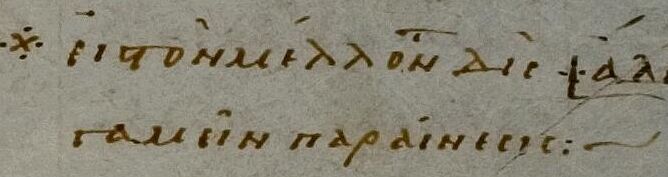 εἰς τὸν μέλλον̅ δὶς
γαμεῖν παραίνεσις: